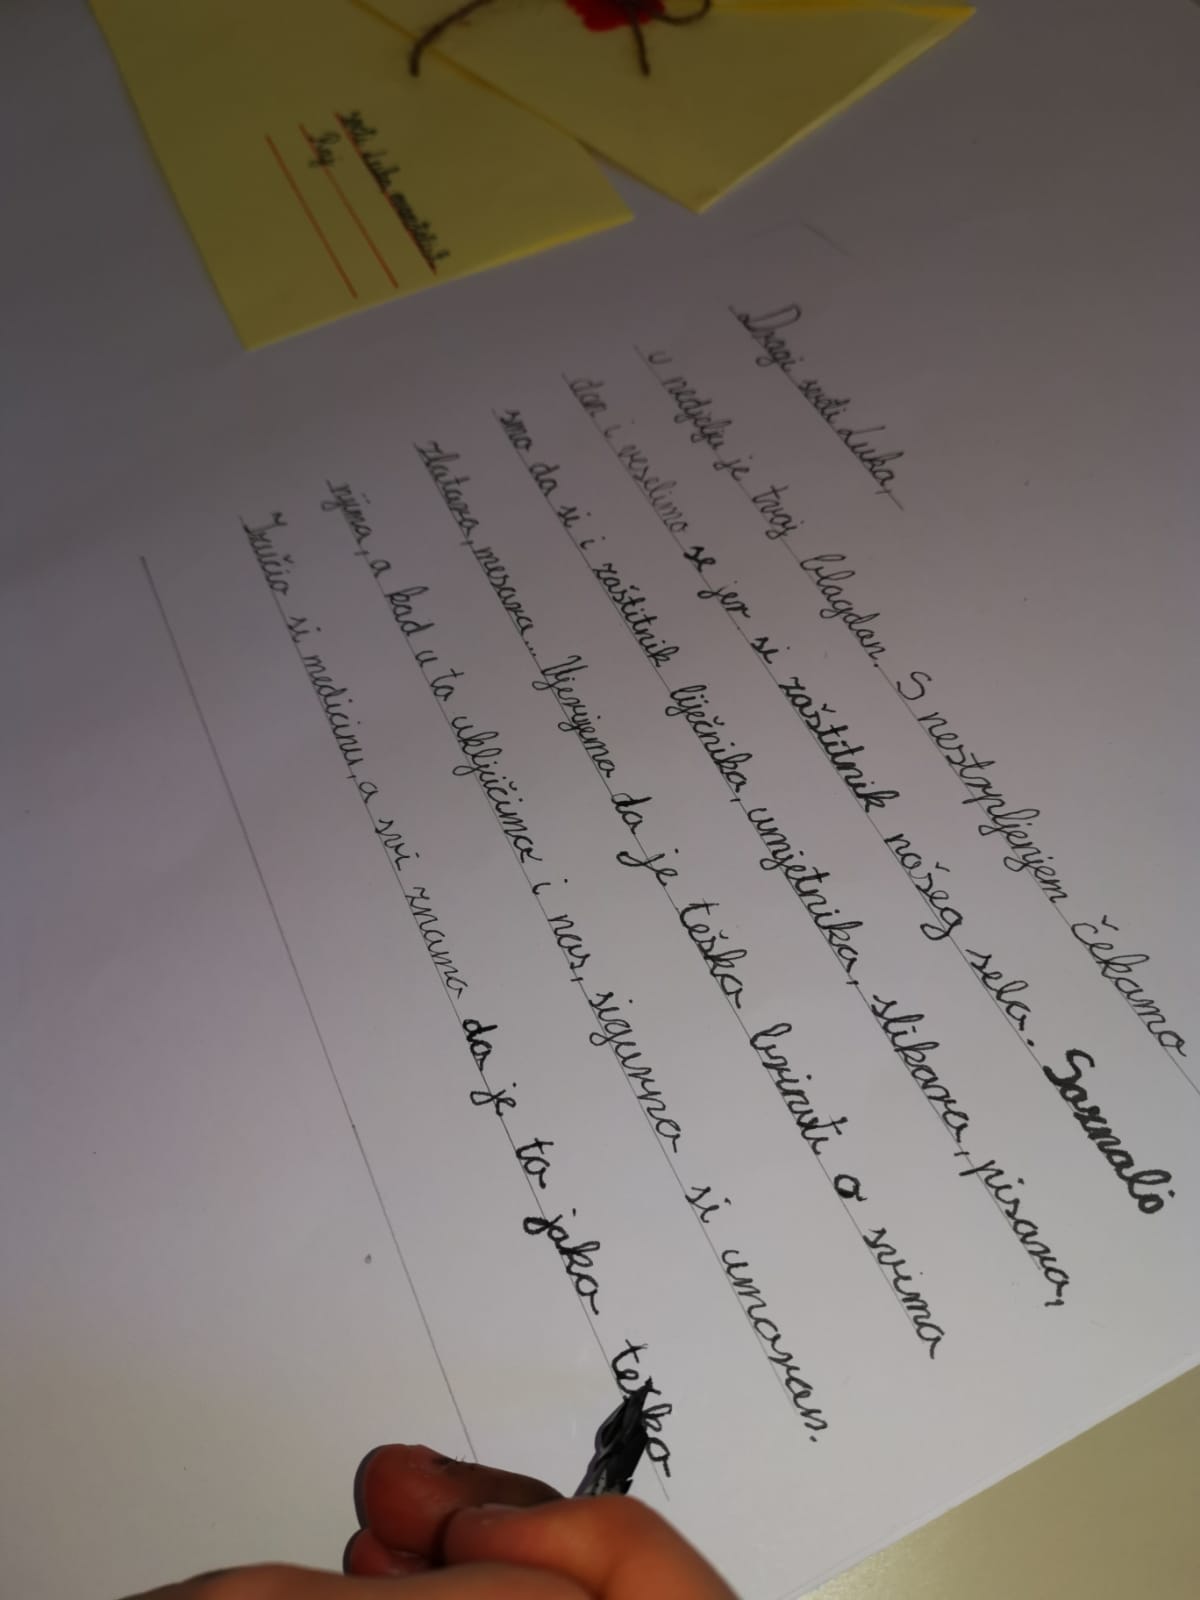 Dragi sveti Luka,
u nedjelju je tvoj blagdan. S nestrpljenjem čekamo
dan i veselimo se jer si zaštitnik našeg sela. Saznali
smo da si i zaštitnik liječnika, umjetnika, slikara, pisara,
zlatara, mesara... Vjerujemo da je teško brinuti o svima
njima, a kad u to uključimo i nas, sigurno si umoran.
Izučio si medicinu, a svi znamo da je to jako teško
sveti Luka, evanđelist
Raj